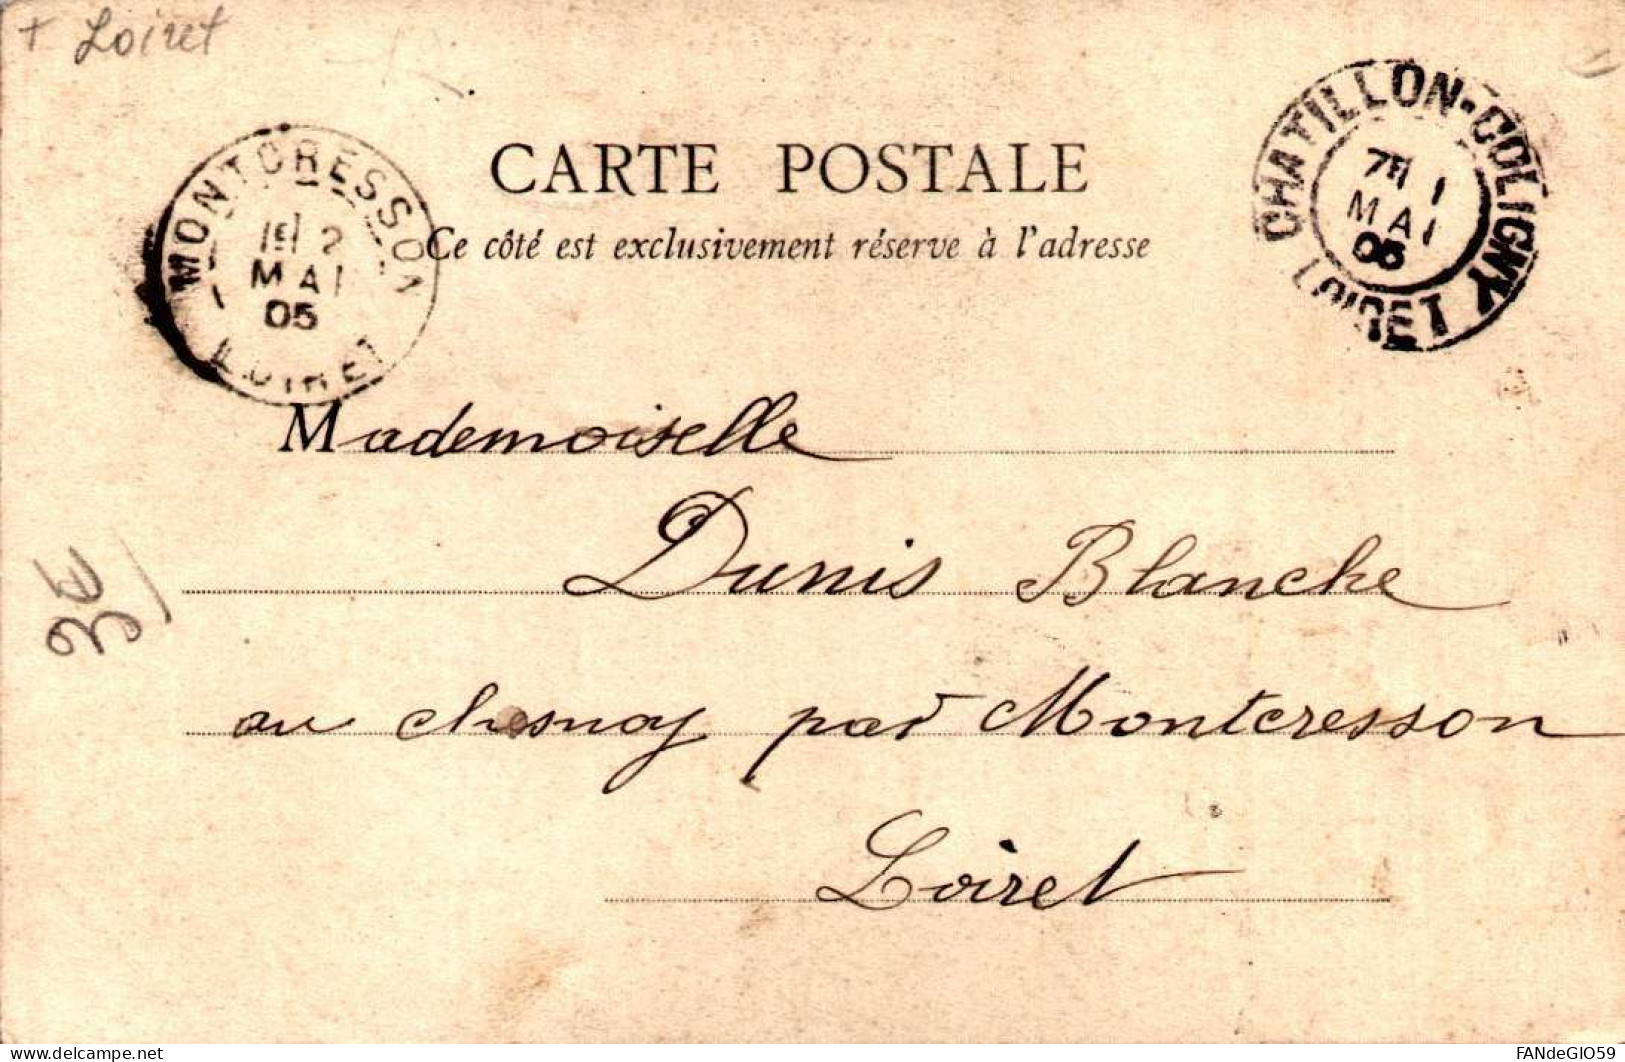 + Loiret
CHATILLON-COLIGNY
7E 1
MAI
05
LOIRET
MONTCRESSON
1E 2
MAI
05
LOIRET
CARTE POSTALE
Ce côté est exclusivement réservé à l'adresse
Mademoiselle
Dunis Blanche
au chesnoy par Montcresson
Loiret
3€
delcampe.net
FANdeGIO59